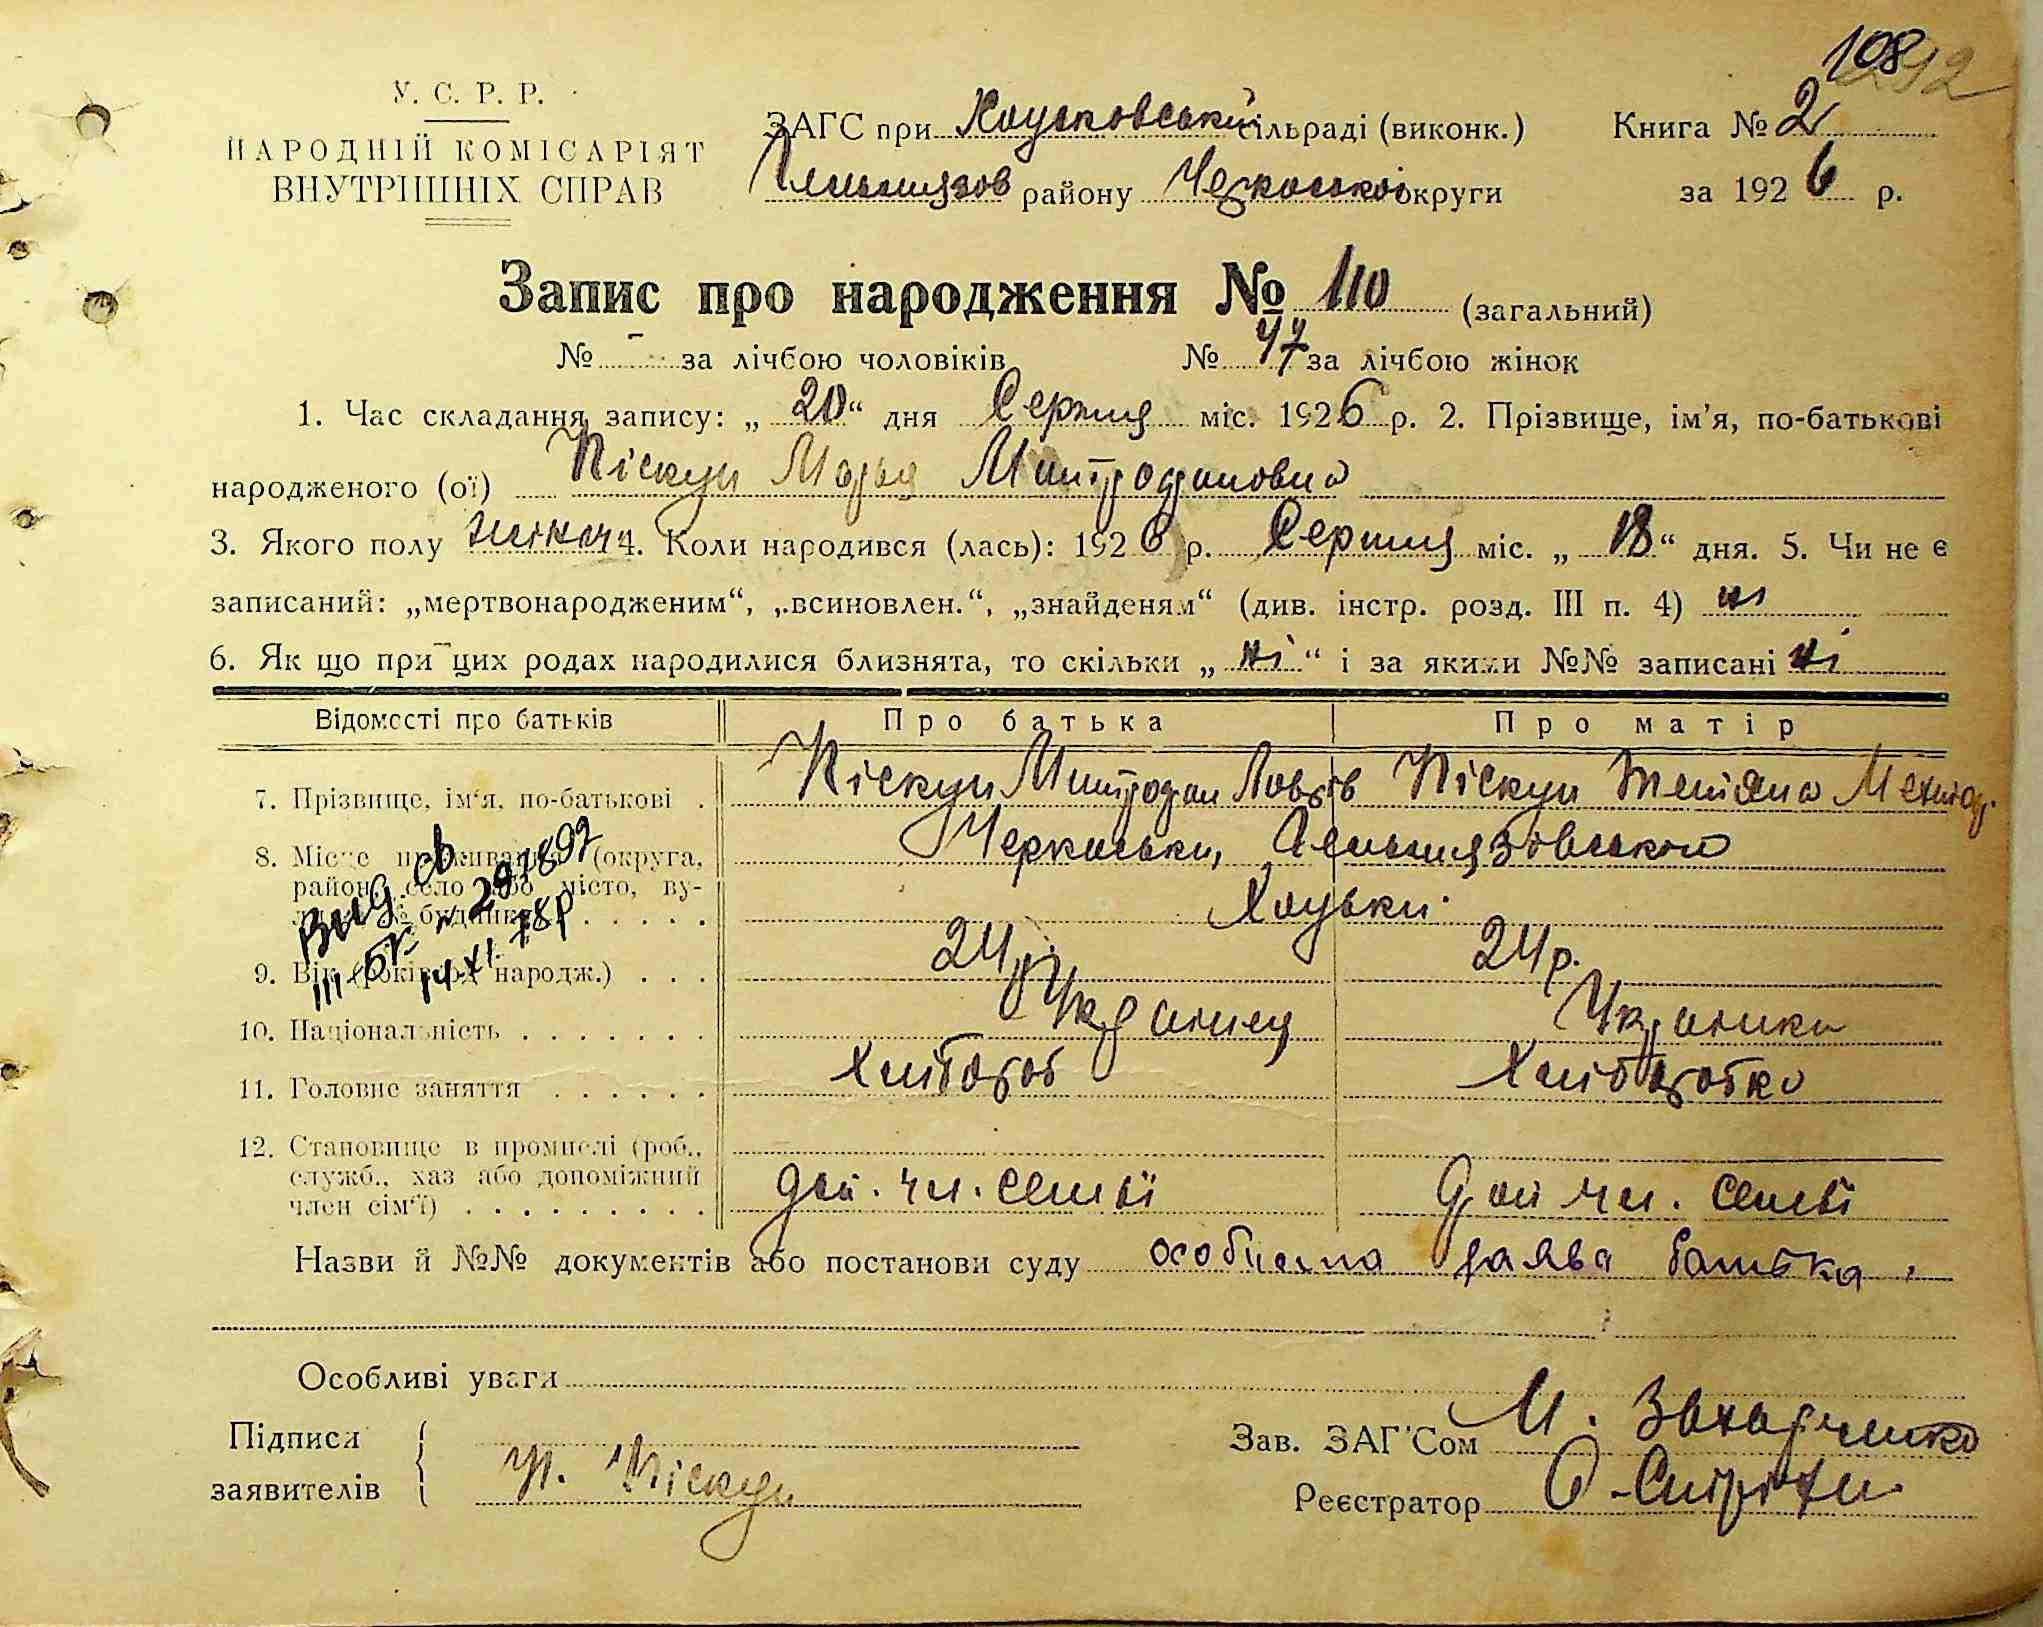 108
У. С. Р. Р.
НАРОДНІЙ КОМІСАРІЯТ
ВНУТРІШНІХ СПРАВ
ЗАГС при Хоцьковській сільраді (виконк.) Книга № 2
Гельмязов району Черкаської округи за 1926 р.
Запис про народження № 110 (загальний)
№ - за лічбою чоловіків № 47 за лічбою жінок
1. Час складання запису: „20“ дня Серпня міс. 1926 р. 2. Прізвище, ім’я, по-батькові
народженого (ої) Піскун Марія Митрофановна
3. Якого полу жіноч 4. Коли народився (лась): 1926 р. Серпня міс. „18“ дня. 5. Чи не є
записаний: „мертвонародженим“, „всиновлен.“, „знайденям“ (див. інстр. розд. III п. 4) ні
6. Як що при цих родах народилися близнята, то скільки „ні“ і за якими №№ записані ні
Відомості про батьків Про батька Про матір
7. Прізвище, ім’я, по-батькові . Піскун Митрофан Піскун Тетіяна
8. Місце проживання (округа, Черкаськи, Гельмязовського
район, село або місто, ву-
лиця, № будинка) . . . . . Хоцьки
Вид. св.
III-БК № 291892
14-XI-78р
9. Вік (років од народж.) . . . 24 р. 24 р.
10. Національність . . . . . . . Українец Українка
11. Головне заняття . . . . . . Хлібороб Хліборобка
12. Становище в промислі (роб.,
служб., хаз або допоміжний
член сім’ї) . . . . . . . . . доп. чл. семьї доп чл. семьї
Назви й №№ документів або постанови суду особиста заява батька.
Особливі уваги
Підписи
заявителів
Піскун
Зав. ЗАГ’Сом
Реєстратор